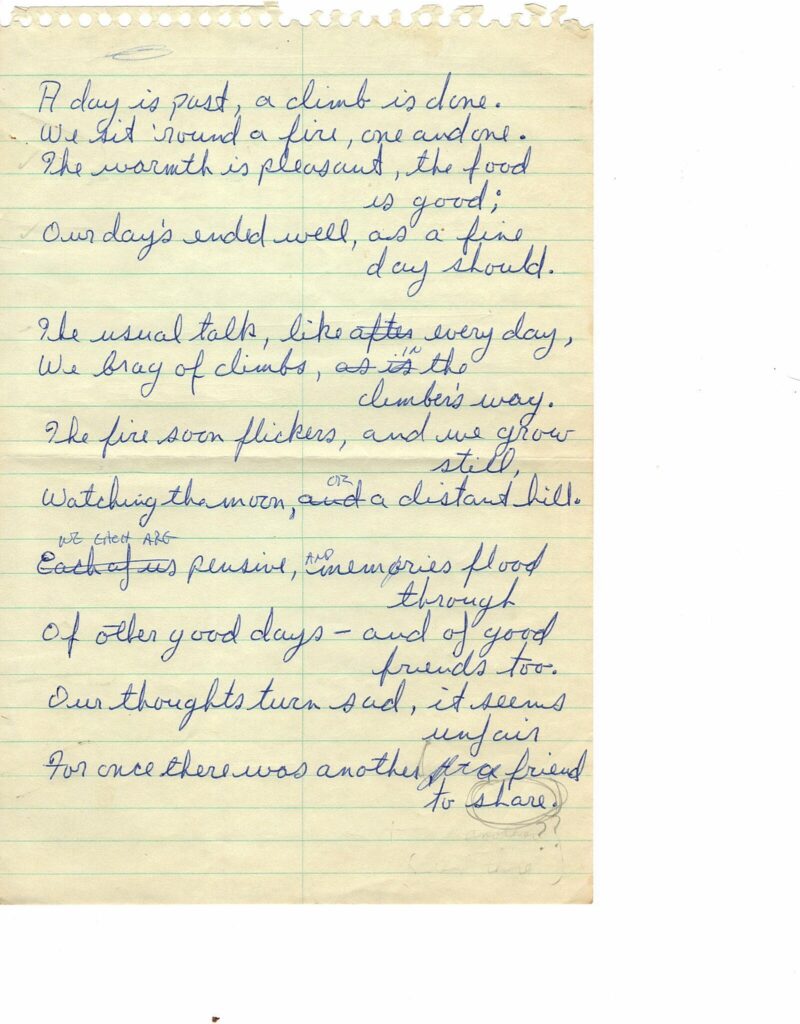 A day is past, a climb is done.
We sit 'round a fire, one and one.
The warmth is pleasant, the food
is good;
Our day's ended well, as a fine
day should.
The usual talk, like after every day,
in
We brag of climbs, as is the
climber's way.
The fire soon flickers, and we grow
still,
or
Watching the moon, and a distant hill.
WE EACH ARE
Each of us pensive, AND memories flood
through
Of other good days – and of good
friends too.
Our thoughts turn sad, it seems
unfair
For once there was another, a friend
to share.
??
another